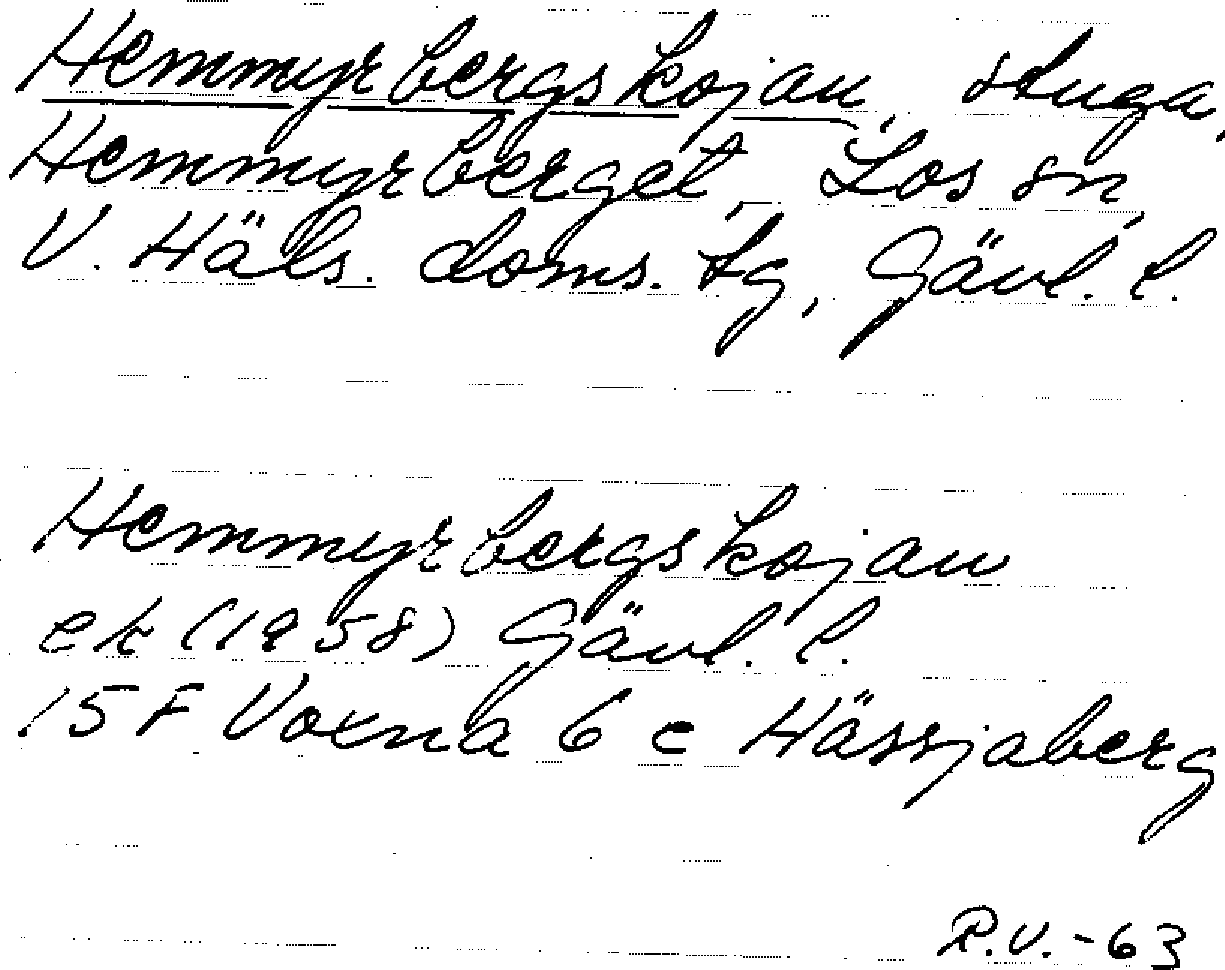 Hemmyrbergskojan, stuga,
Hemmyrberget, Los sn,
V. Häls. doms. tg, Gävl. l.
Hemmyrbergskojan
ek (1958) Gävl. l.
15 F Voxna 6 e Hässjaberg
R.V.-63